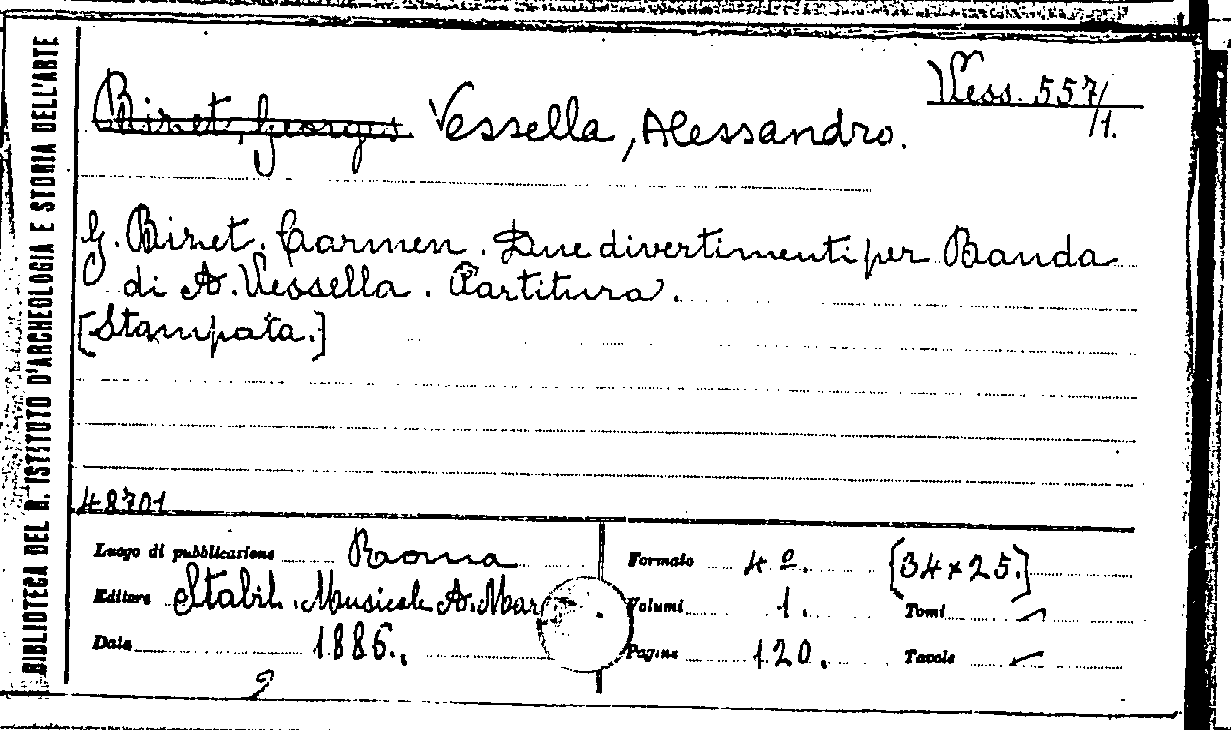 BIBLIOTECA DEL R. ISTITUTO D'ARCHEOLOGIA E STORIA DELL'ARTE
Vess. 557/1.
Bizet, Georges Vessella, Alessandro.
G. Bizet. Carmen. Due divertimenti per Banda
di A. Vessella. Partitura.
[Stampata.]
48701
Luogo di pubblicazione Roma
Editore Stabil. Musicale A. Mar
Data 1886.
Formato 4º. [34×25.]
Volumi 1. Tomi –
Pagine 120. Tavole –